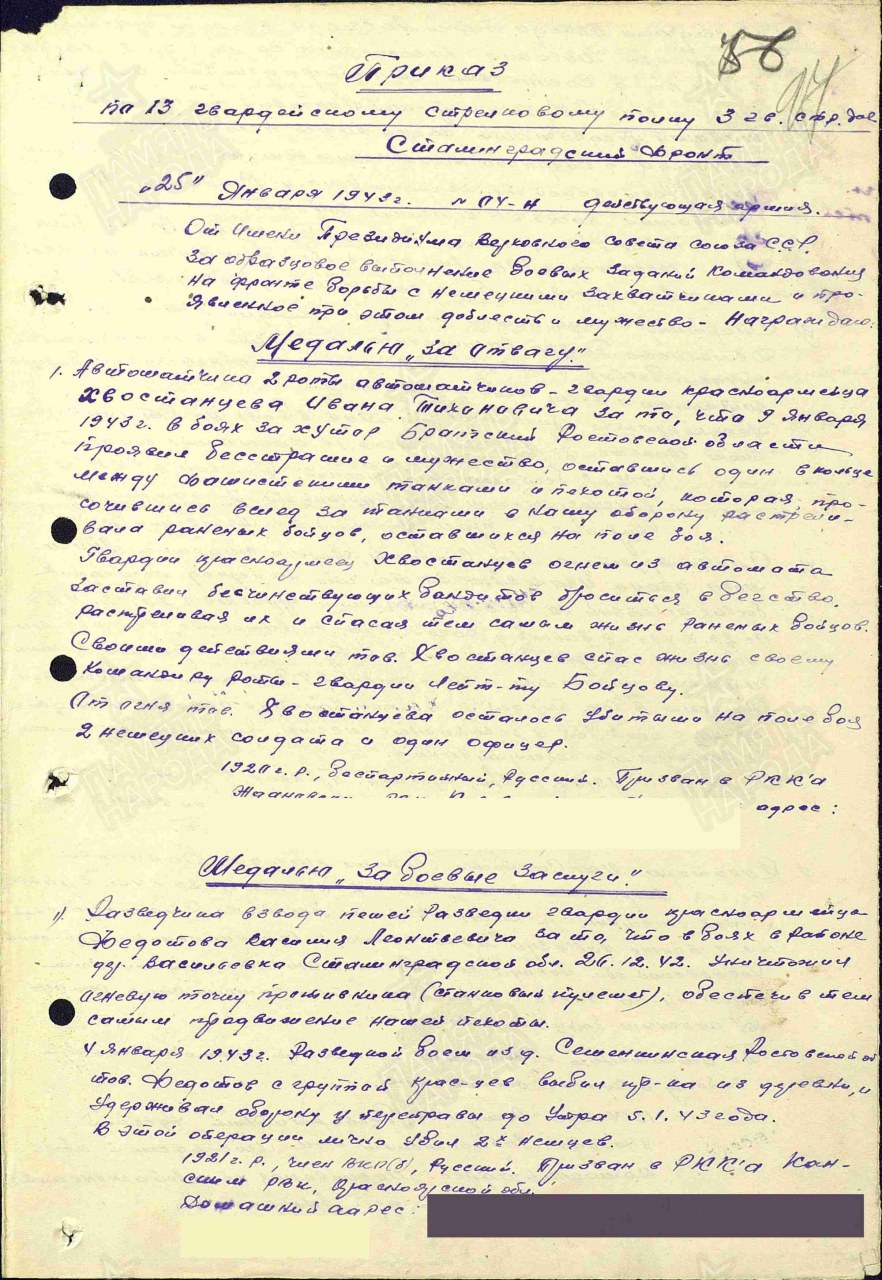 Приказ
по 13 гвардейскому стрелковому полку 3 гв. стр. див
Сталинградский Фронт
"25" Января 1943 г. № 04-н действующая армия.
От Имени Президиума Верховного Совета Союза ССР.
За образцовое выполнение боевых заданий Командования
на фронте борьбы с немецкими захватчиками и про-
явленное при этом доблесть и мужество - Награждаю:
Медалью "За отвагу".
1. Автоматчика 2 роты автоматчиков - гвардии красноармейца
Хвостанцева Ивана Тихановича за то, что 9 Января
1943 г. в боях за хутор Братский Ростовской области
проявил бесстрашие и мужество, оставшись один в кольце
между фашистскими танками и пехотой, которая про-
сочившись вслед за танками в нашу оборону расстрели-
вала раненых бойцов, оставшихся на поле боя.
Гвардии красноармеец Хвостанцев огнем из автомата
заставил бесчинствующих бандитов броситься в бегство,
расстреливая их и спасая тем самым жизнь раненых бойцов.
Своими действиями тов. Хвостанцев спас жизнь своему
Командиру роты - гвардии Лейт-ту Бойцову.
От огня тов. Хвостанцева осталось убитыми на поле боя
2 немецких солдата и один офицер.
г.р., беспартийный, Русский. Призван в РККА
адрес:
Медалью "За боевые Заслуги".
1). Разведчика взвода пешей разведки гвардии красноармейца
Федотова Василия Леонтьевича за то, что в боях в районе
дер. Васильевка Сталинградской обл. 26.12.42. Уничтожил
огневую точку противника (станковый пулемет), обеспечив тем
самым продвижение нашей пехоты.
4 Января 1943 г. Разведкой боем из д. Семенкинская Ростовской об
тов. Федотов с группой крас-цев выбил пр-ка из деревни, и
удерживал оборону у переправы до Утра 5.1.43 года.
В этой операции лично убил 2х немцев.
1921 г.р., член ВКП(б), Русский. Призван в РККА Кан-
ским РВК, Красноярской обл.
Домашний адрес: